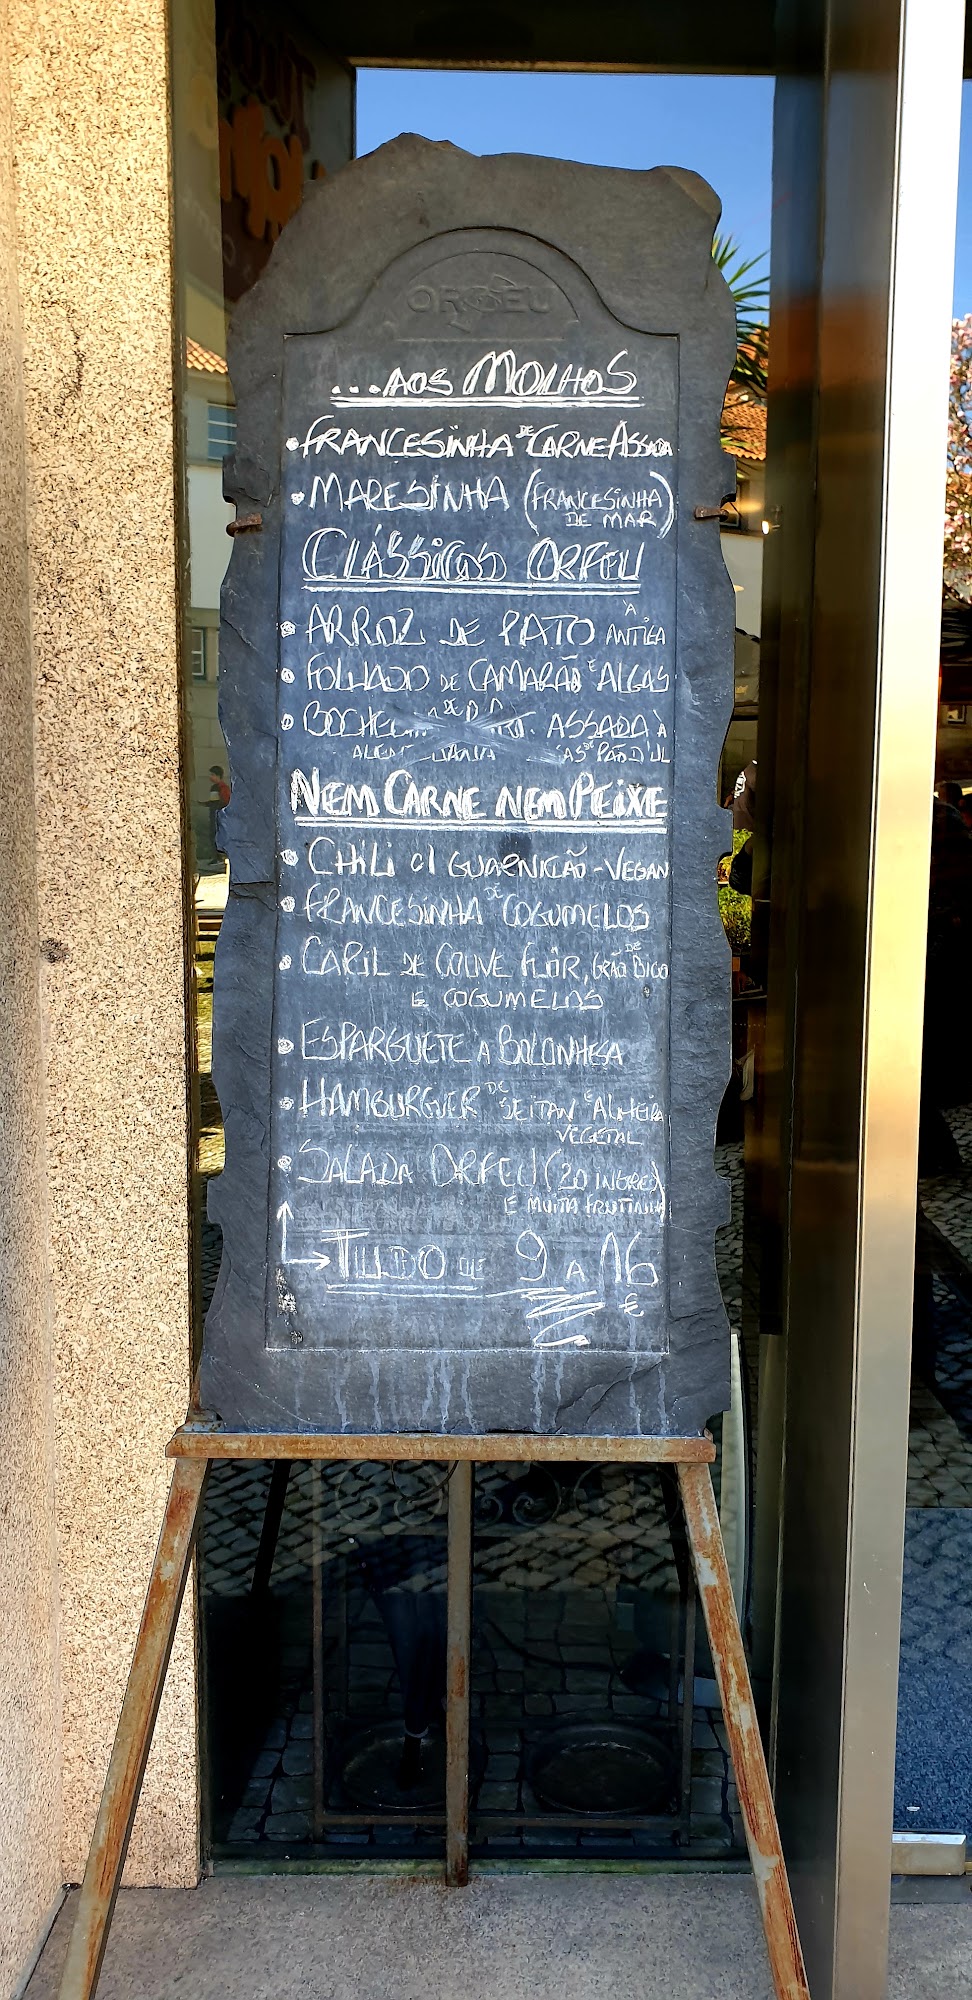 ORFEU
...AOS MOLHOS
• FRANCESINHA DE CARNE ASSADA
• MARESINHA (FRANCESINHA
DE MAR)
CLÁSSICOS ORFEU
• ARROZ DE PATO À ANTIGA
• FOLHADO DE CAMARÃO E ALGAS
• ASSADA À
NEM CARNE NEM PEIXE
• CHILI C/ GUARNIÇÃO - VEGAN
• FRANCESINHA DE COGUMELOS
• CARIL DE COUVE FLÔR, GRÃO DE BICO
E COGUMELOS
• ESPARGUETE A BOLONHESA
• HAMBURGUER DE SEITAN E ALHEIRA
VEGETAL
• SALADA ORFEU (20 INGRED
E MUITA FRUTINHA)
TUDO DE 9 A 16
€